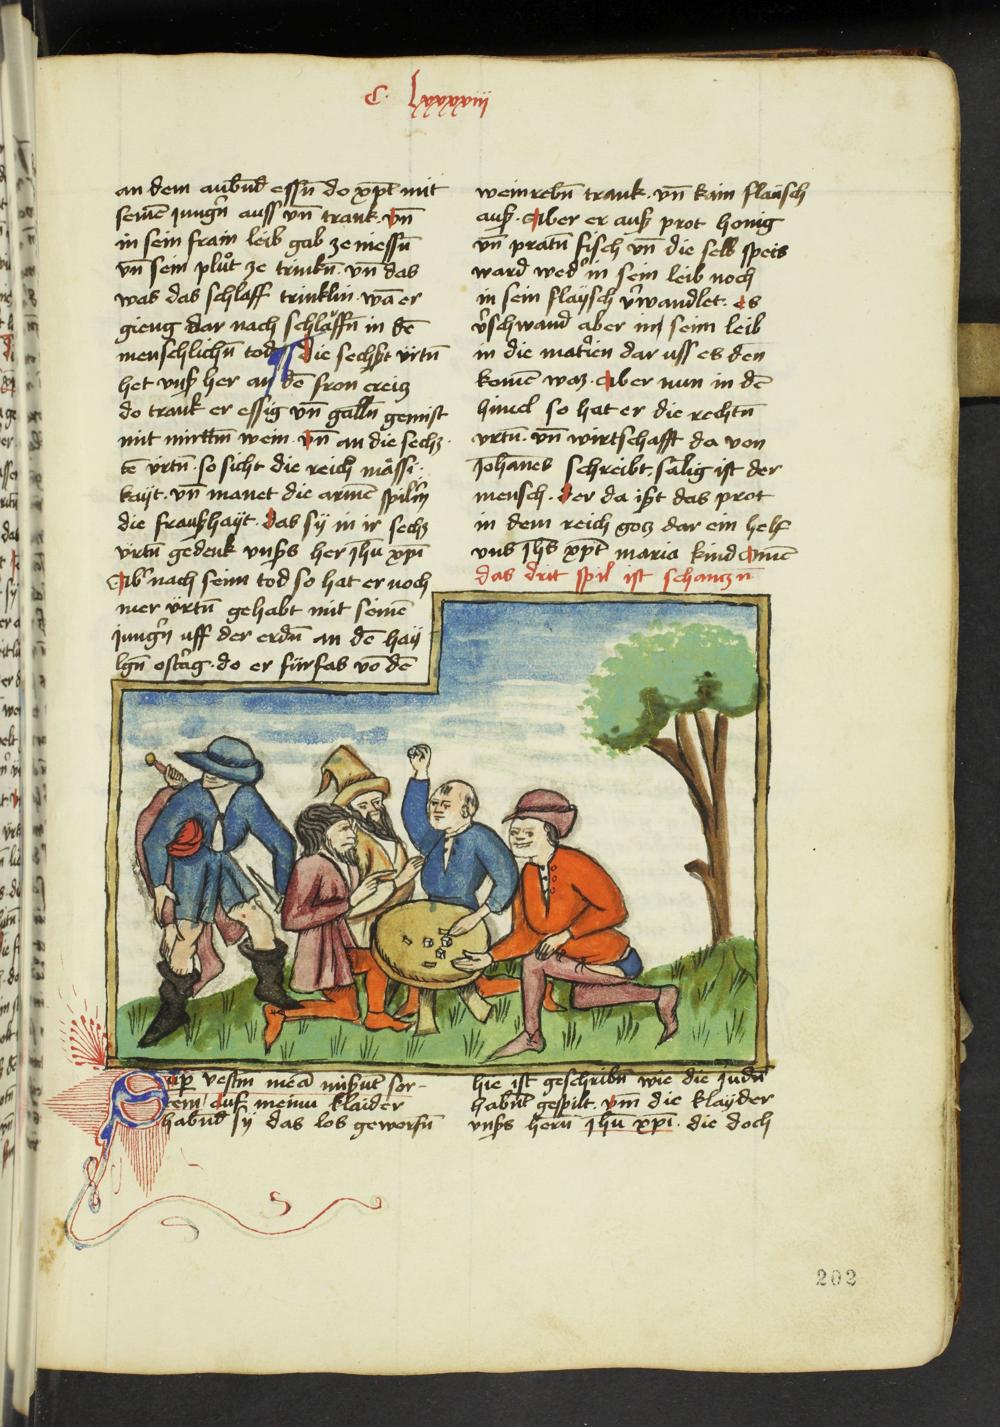 C. lxxxxviij
an dem aubnd essn do xpt mit
seinen jungn auss vn̄ trank. vn̄
in sein frain leib gab ze niessn
vn̄ sein plůt ze trinkn. vn̄ das
was das schlaff trinklin. wā er
gieng dar nach schlaffn in dē
menschlichn tod. Die sechst vrtn
het vnser her an dē fron creicz
do trank er essig vn̄ galln gemist
mit mirrtm wein. vn̄ an die sechz
te vrtn. so sicht die reich mässi
kayt. vn̄ manet die armē spilrn
die frausshayt. das sy in ir sechz
vrtn gedenk vnsers her jhu xpi
Aber nach seim tod so hat er noch
mer vrtn gehabt mit seinē
jungrn uff der erdn an dē hay
lgn ostertag. do er fürsas vō dē
weinrebn trank. vn̄ kain flaysch
auß. Aber er auß prot honig
vn̄ pratn fisch vn̄ die selb speis
ward weder in sein leib noch
in sein flaysch verwandlet. es
verschwand aber in seim leib
in die matrien dar uss es den
komē waz. Aber nun in dē
himel so hat er die rechtn
vrtn. vn̄ wirtschafft da von
Johanes schreibt. sälig ist der
mensch. der da ißt das prot
in dem reich gocz dar ein helf
vns jhs xpt maria kind Amē
das drit spil ist schanczn
Super vestm meā misēut sor-
tem auf meinu klaider
habnd sy das los geworfn
hie ist geschribn wie die judn
habnt gespilt. vm die klayder
vnsers hern jhu xpi. die doch
202